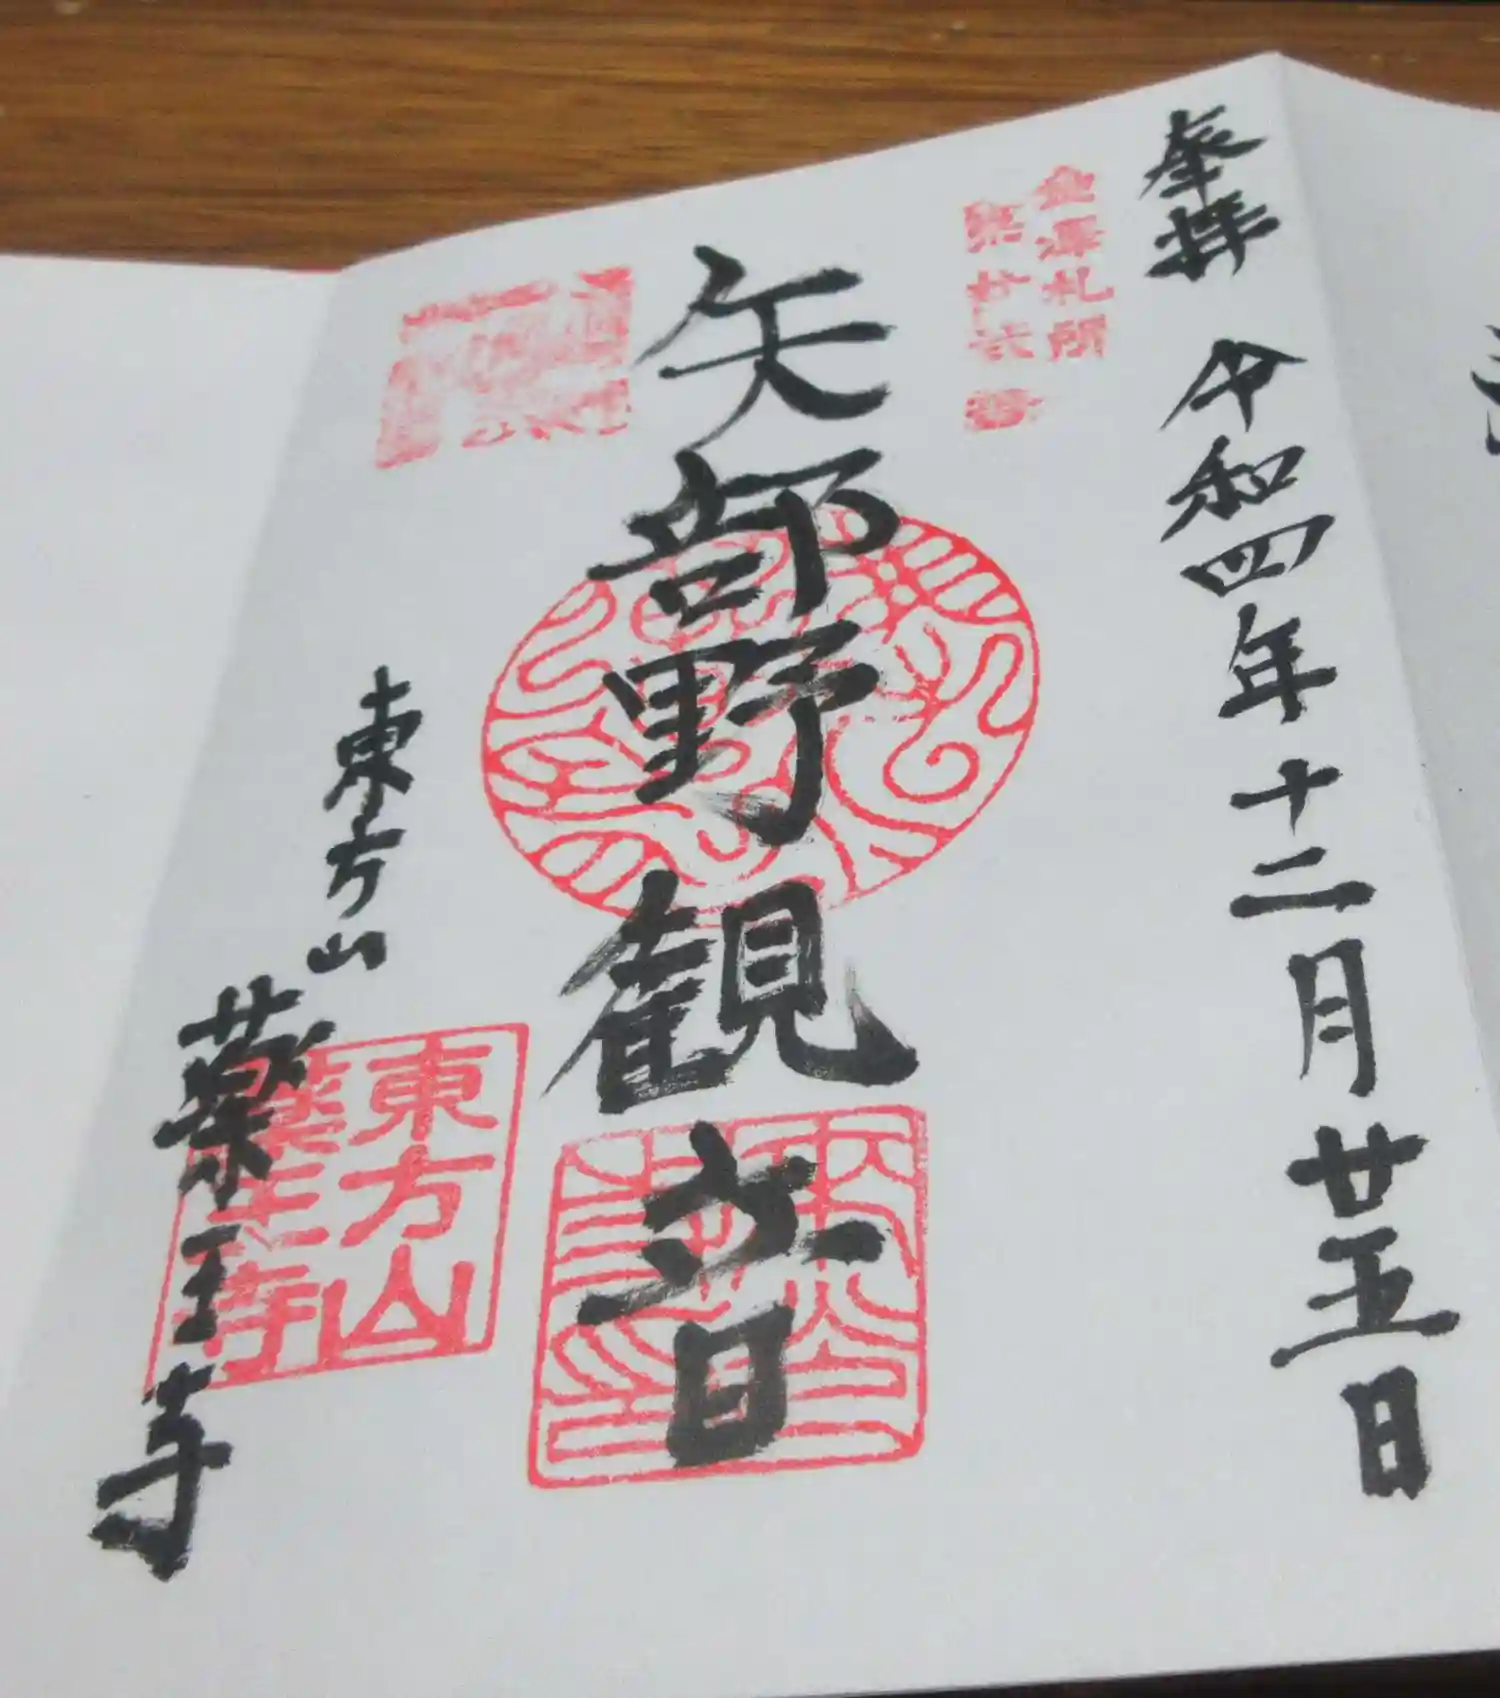 奉拝 令和四年十二月廿五日
金澤札所
矢部野観音
東方山 薬王寺
東方山
薬王寺